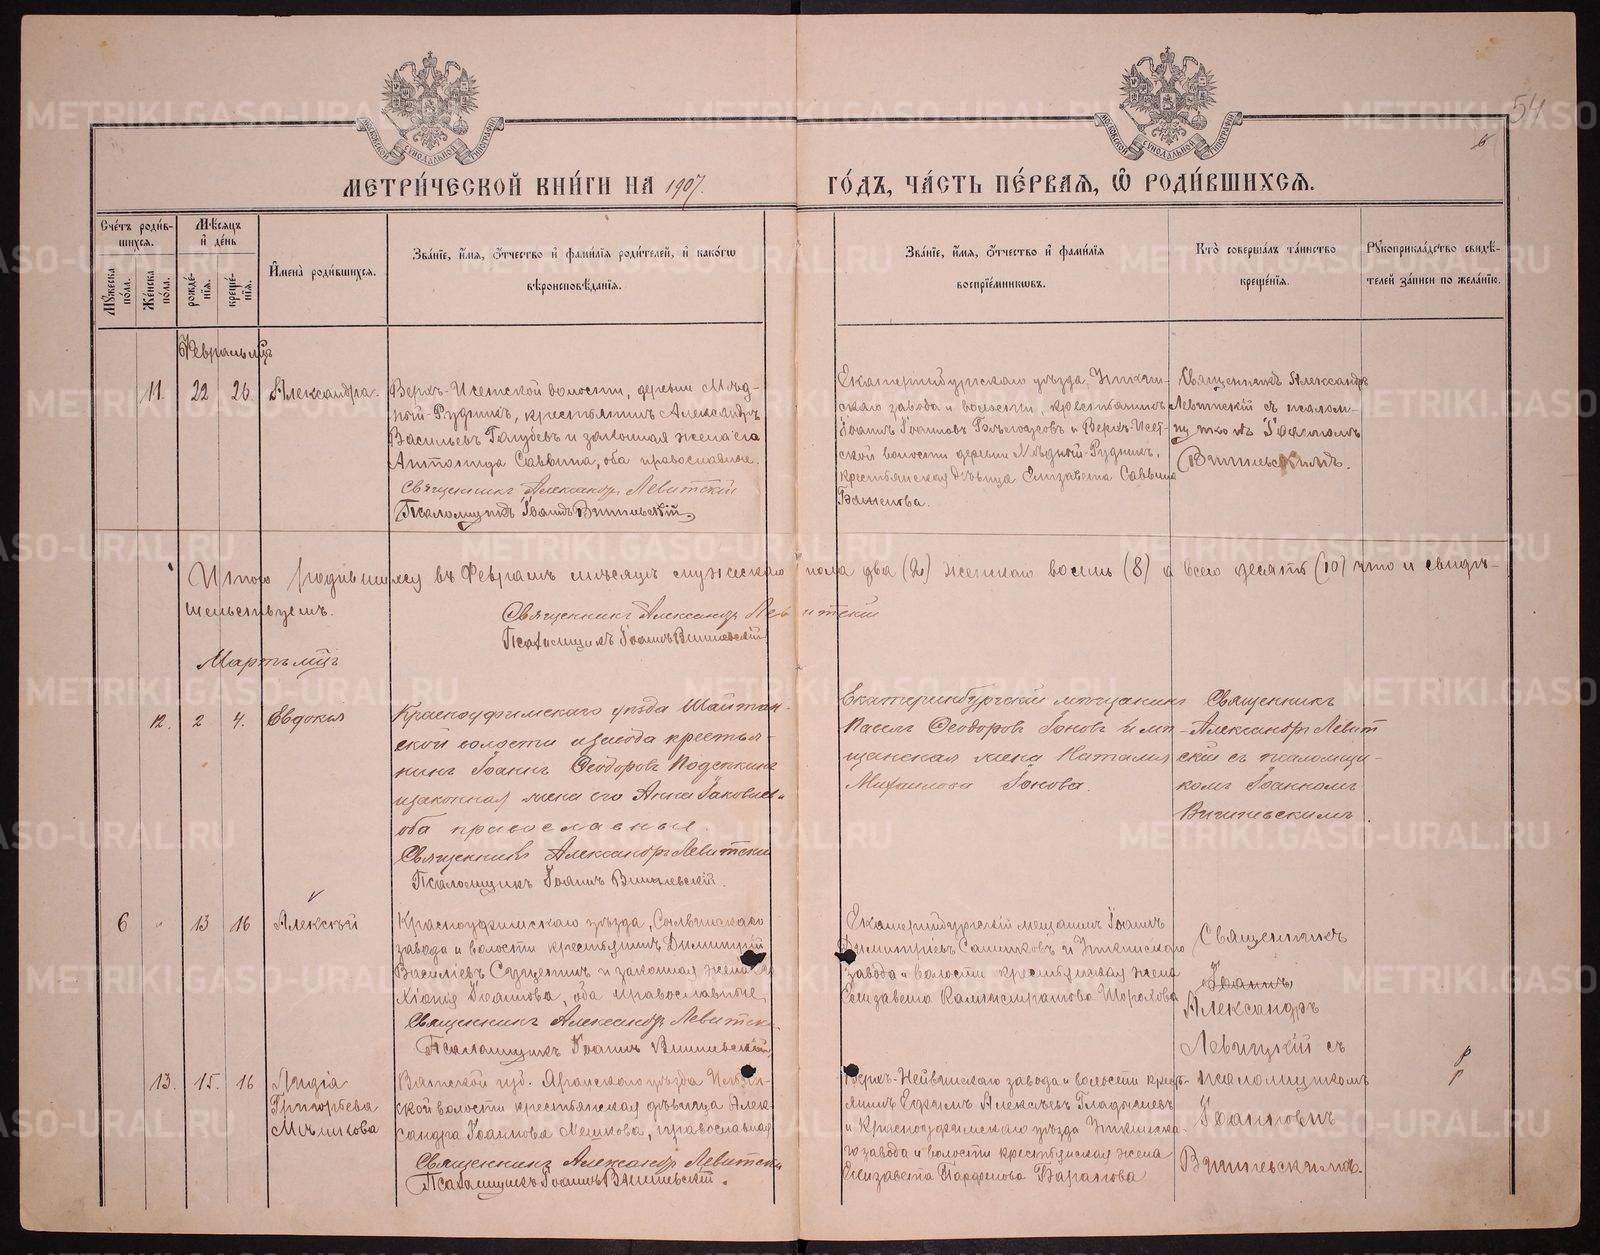 МОСКОВСКОЙ СУНОДАЛЬНОЙ ТИПОГРАФІИ
МОСКОВСКОЙ СУНОДАЛЬНОЙ ТИПОГРАФІИ
54
МЕТРИ́ЧЕСКОЙ КНИ́ГИ НА 1907.
ГО́ДЪ, ЧА́СТЬ ПЕ́РВАѦ, Ѿ РОДИ́ВШИХСѦ.
Сче́тъ роди́в-
шихся.
Мѣ́сяцъ
и҆ де́нь
Мꙋ́жеска по́ла.
Же́нска по́ла.
рожде́-
нїя.
креще́-
нїя.
И҆мена̀ роди́вшихся.
Зва́нїе, и҆́мя, ѻ҆́тчество и҆ фами́лїя роди́телей, и҆ како́гѡ
вѣроисповѣ́данїя.
Зва́нїе, и҆́мя, ѻ҆́тчество и҆ фами́лїя
воспрїе́мникѡвъ.
Кто̀ соверша́лъ та́инство
креще́нїя.
Рꙋкоприкла́дство свидѣ́-
телей за́писи по жела́нїю.
Февраль мцъ
11. 22 26. Александра.
Верхъ-Исетской волости, деревни Мѣд-
ный-Рудникъ, крестьянинъ Александръ
Васильевъ и законная жена его
Антонида Саввина, оба православные.
Священникъ Александръ Левитскій
Псаломщикъ Іоаннъ Вишневскій
Екатеринбургскаго уѣзда, Уткин-
скаго завода и волости, крестьянинъ
Іоаннъ Іоанновъ Бѣлоусовъ и Верхъ-Исет-
ской волости деревни Мѣдный-Рудникъ,
крестьянская дѣвица Елизавета Саввина
Священникъ Александръ
Левитскій съ псалом-
щикомъ Іоанномъ
Вишневскимъ.
Итого родившихся въ Февралѣ мѣсяцѣ мужескаго пола два (2) женскаго восемь (8) а всего десять (10) что и свидѣ-
тельствуемъ.
Священникъ Александръ Левитскій
Псаломщикъ Іоаннъ Вишневскій
Мартъ мцъ
12. 2 4. Евдокія
Красноуфимскаго уѣзда Шайтан-
ской волости и завода крестья-
нинъ Іоаннъ Ѳеодоровъ
и законная жена его Анна Іаковлева
оба православные.
Священникъ Александръ Левитскій
Псаломщикъ Іоаннъ Вишневскій.
Екатеринбургскій мѣщанинъ
Павелъ Ѳеодоровъ Іоновъ и мѣ-
щанская жена Наталія
Михаилова Іонова.
Священникъ
Александръ Левит-
скій съ псаломщи-
комъ Іоанномъ
Вишневскимъ.
6 13 16 Алексѣй
Красноуфимскаго уѣзда, Сылвинскаго
завода и волости крестьянинъ Димитрій
Василіевъ и законная жена его
Хіонія Іоаннова, оба православные
Священникъ Александръ Левитскій
Псаломщикъ Іоаннъ Вишневскій.
Екатеринбургскій мещанинъ Іоаннъ
Димитріевъ и Уткинскаго
завода и волости крестьянская жена
Елизавета Каллистратова Шорохова
Священникъ
Іоаннъ
Александръ
Левицкій съ
псаломщикомъ
Іоанномъ
Вишневскимъ.
13. 15. 16 Лидія
Григорьева
Мѣшкова
Вятской губ. Яранскаго уѣзда
ской волости крестьянская дѣвица Алек-
сандра Іоаннова Мешкова, православная
Священникъ Александръ Левитскій
Псаломщикъ Іоаннъ Вишневскій.
Верхъ-Нейвинскаго завода и волости кресть-
янинъ Ефимъ Алексѣевъ Гладышевъ
и Красноуфимскаго уѣзда Уткинска-
го завода и волости крестьянская жена
Елизавета Парфенова Баранова
METRIKI.GASO-URAL.RU